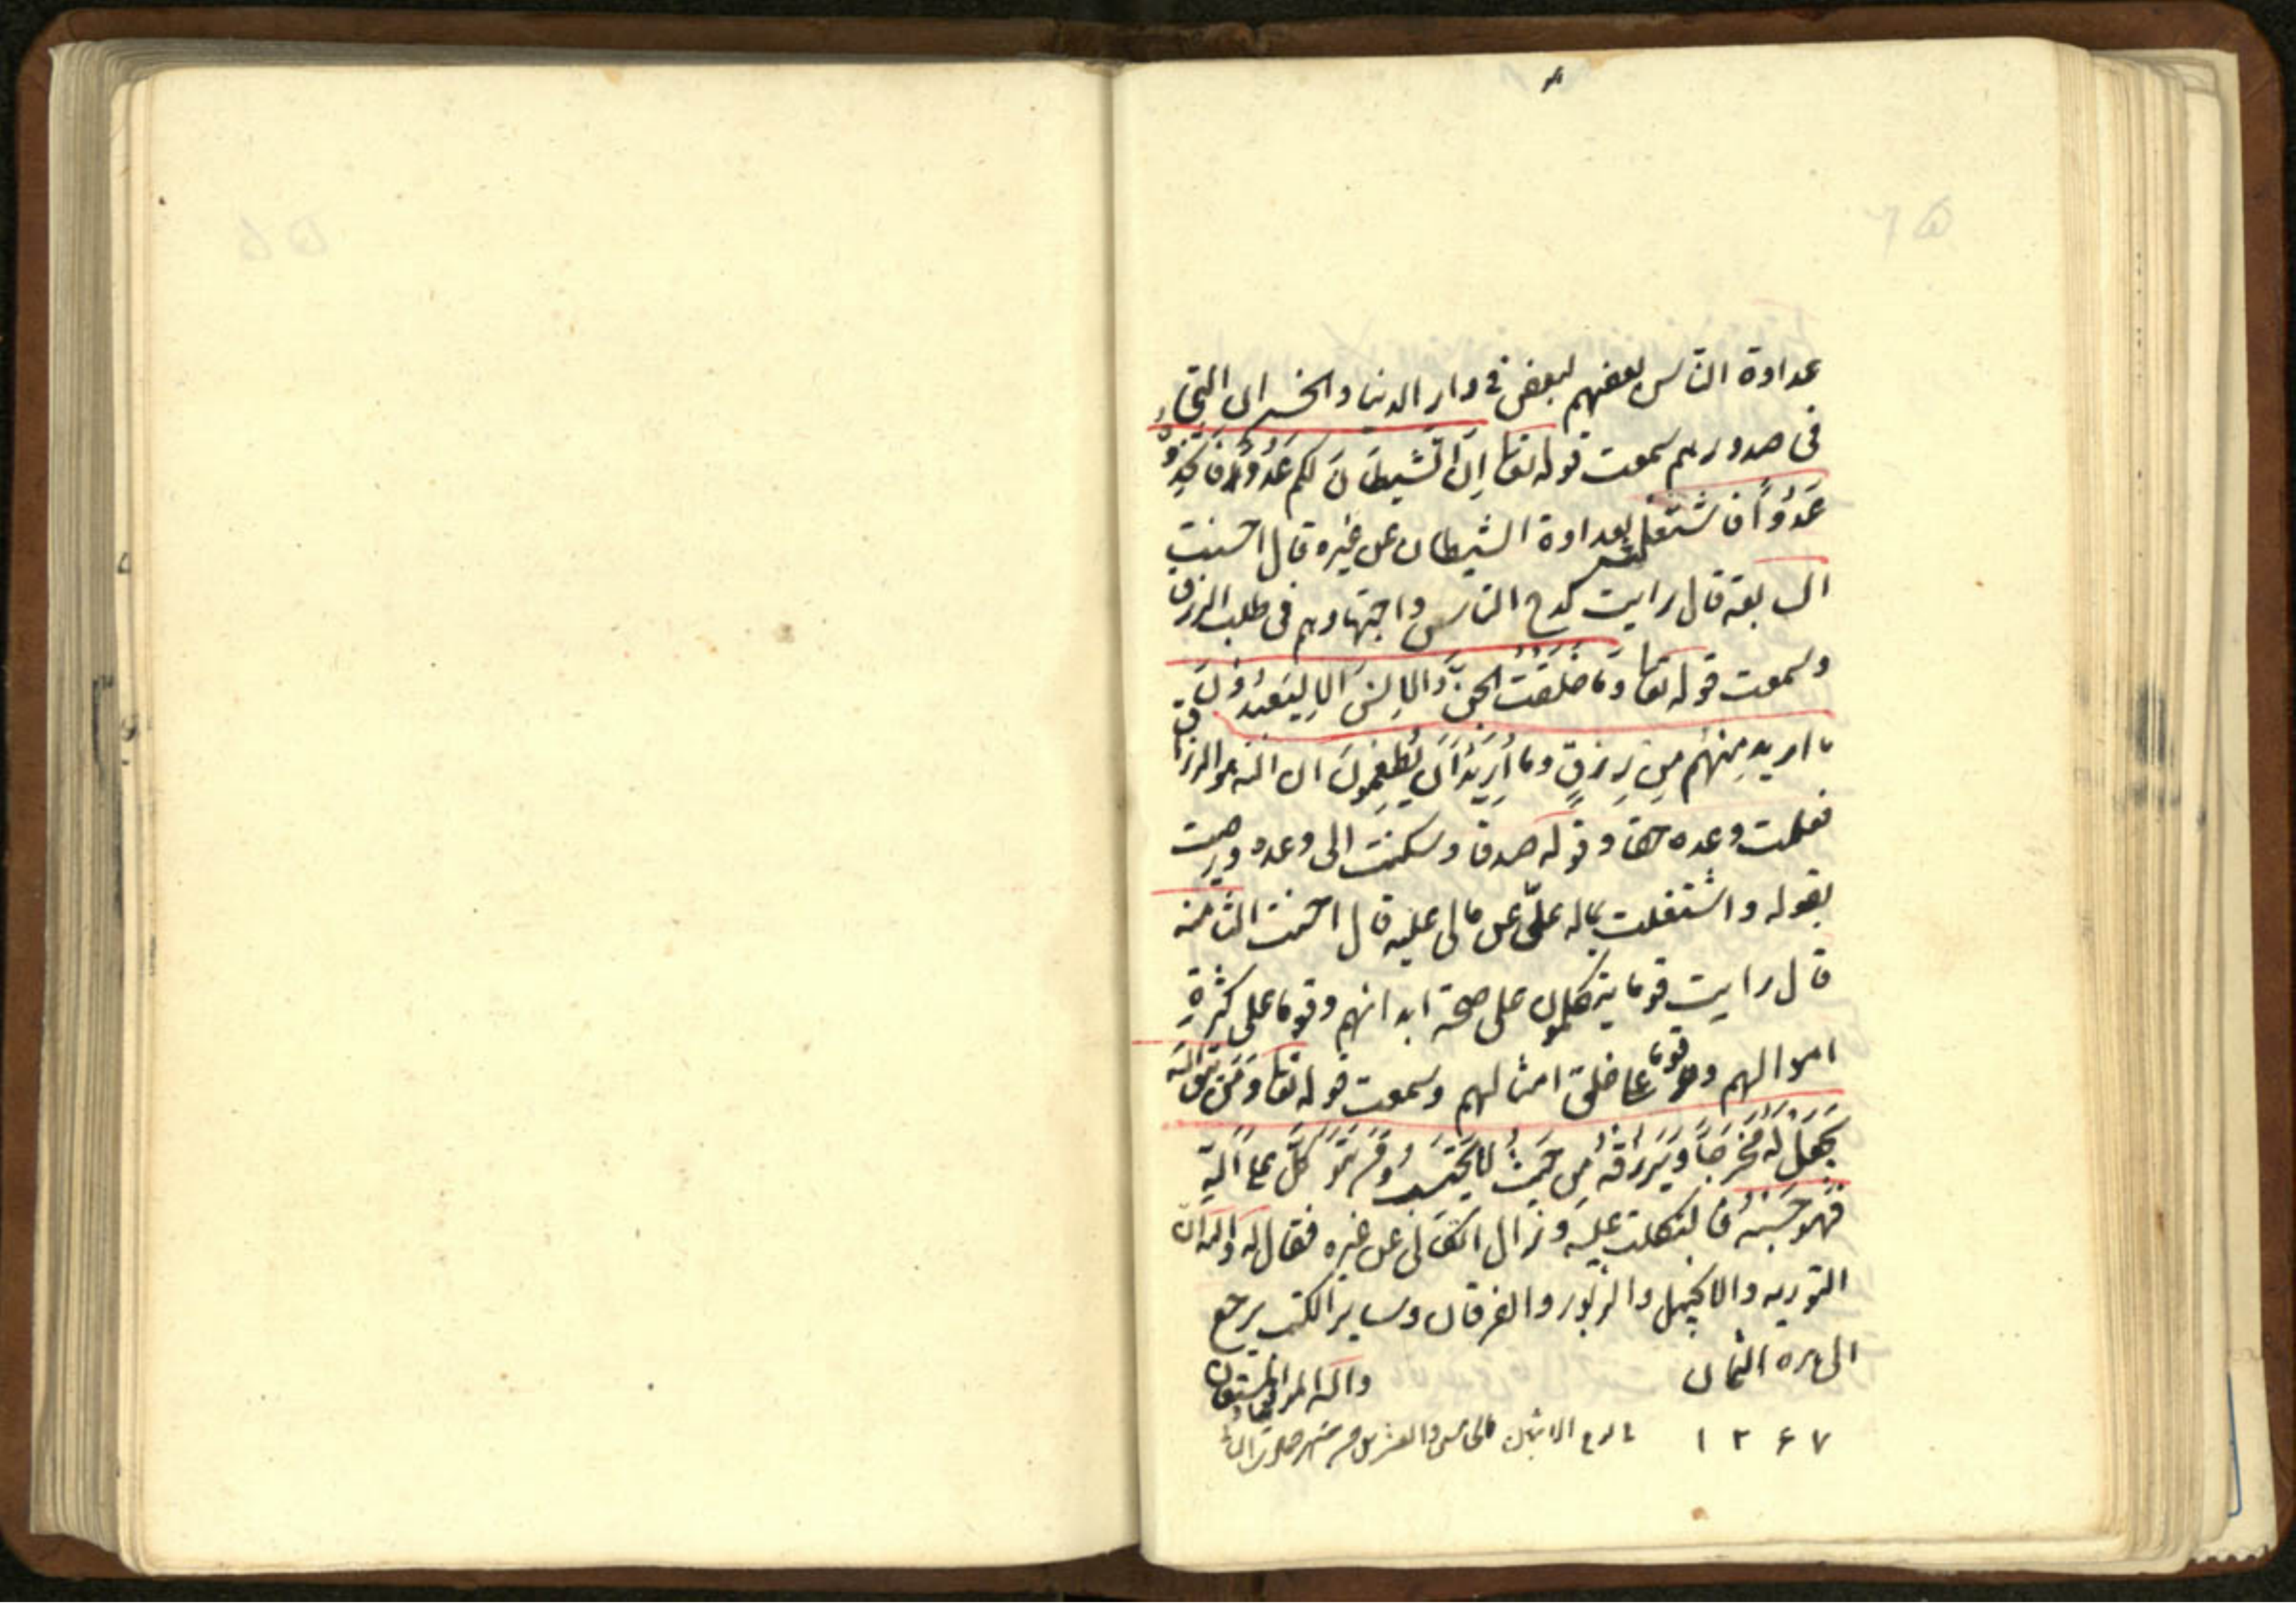 عداوة الناس بعضهم لبعض في دار الدنيا و
في صدورهم سمعت قوله تعا اِنَّ الشَّيطَانَ لكم عَدُوٌّ فَاتَّخِذُوهُ
عَدُوّاً فاشتغلت بعداوة الشيطان عن غيره قال احسنت
السابعة قال رايت كدح الناس واجتهادهم في طلب الرزق
وسمعت قوله تعا وَمَا خَلَقْتُ الجِنَّ وَالاِنْسَ اِلا لِيَعْبُدُونَ
ما اريد مِنهُم مِن رِزقٍ وما أُرِيدُ أَن يُطْعِمُونَ ان الله هو الرزاق
فعلمت وعده حقا وقوله صدقا وسكنت الى وعده ورضيت
بقوله واشتغلت بماله عليّ عن مالي عليه قال احسنت الثامنة
قال رايت قوما يتكلون على صحة ابدانهم وقوما على كثرةِ
اموالهم وقوما على خلق امثالهم وسمعت قوله تعا وَمَن يتق اللهَ
يَجعَل لَهُ مَخرَجَاً وَيَرزُقهُ مِن حَيثُ لا يَحْتَسِبُ وَمَن يَتَوَكَّل عَلى اللهِ
فَهُوَ حَسبُهُ فاتكلت عليه وزال اتكالي عن غيره فقال له والله ان
التوريه والانجيل والزبور والفرقان وساير الكتب يرجع
الى هذه الثمان والله المستعان
۱۲۶۷